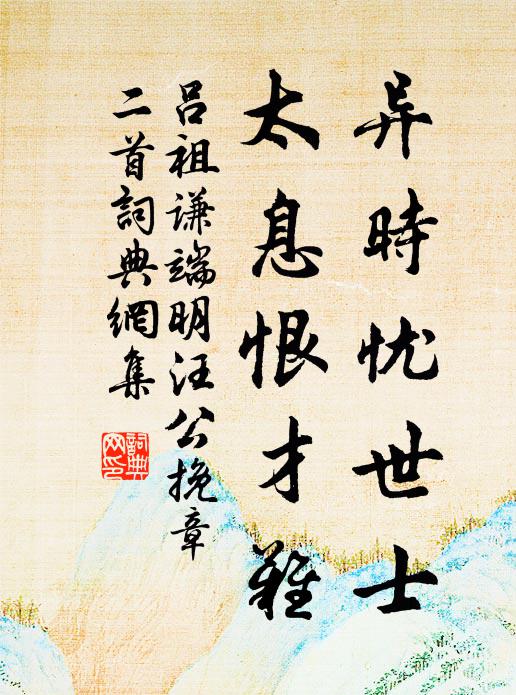 异時忧世士
太息恨才難
吕祖谦端明汪公挽章
二首詞典網集
詞典
网印